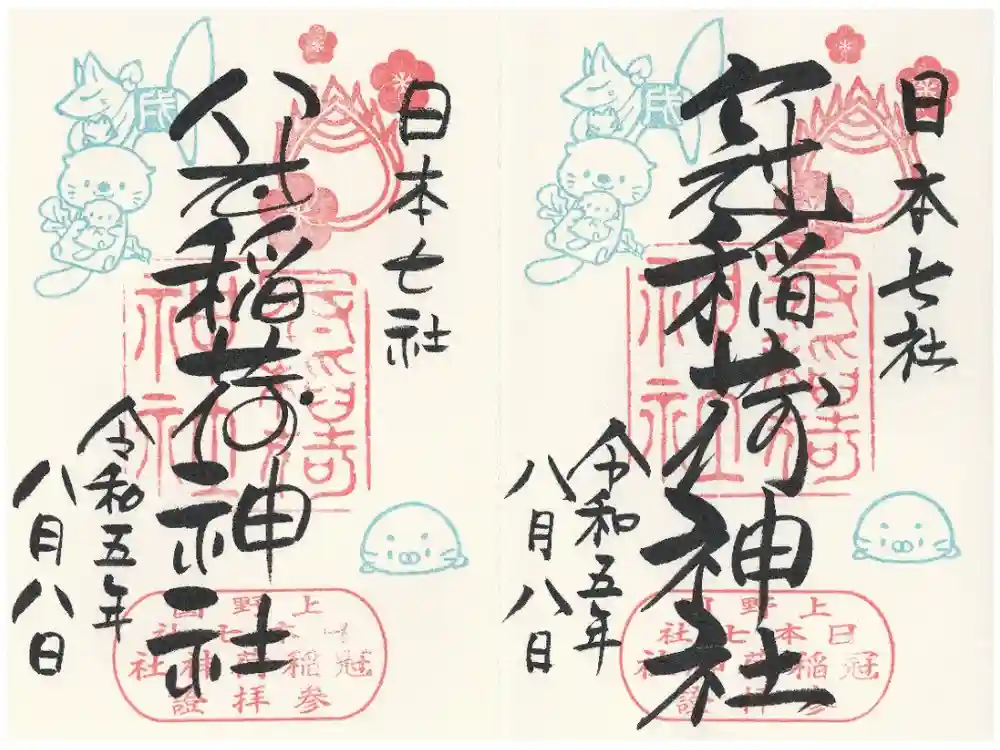 日本七社
冠稲荷神社
令和五年
八月八日
戌
冠稲荷
神社
上野国
日本七社
冠稲荷神社
参拝證
日本七社
冠稲荷神社
令和五年
八月八日
戌
冠稲荷
神社
上野国
日本七社
冠稲荷神社
参拝證